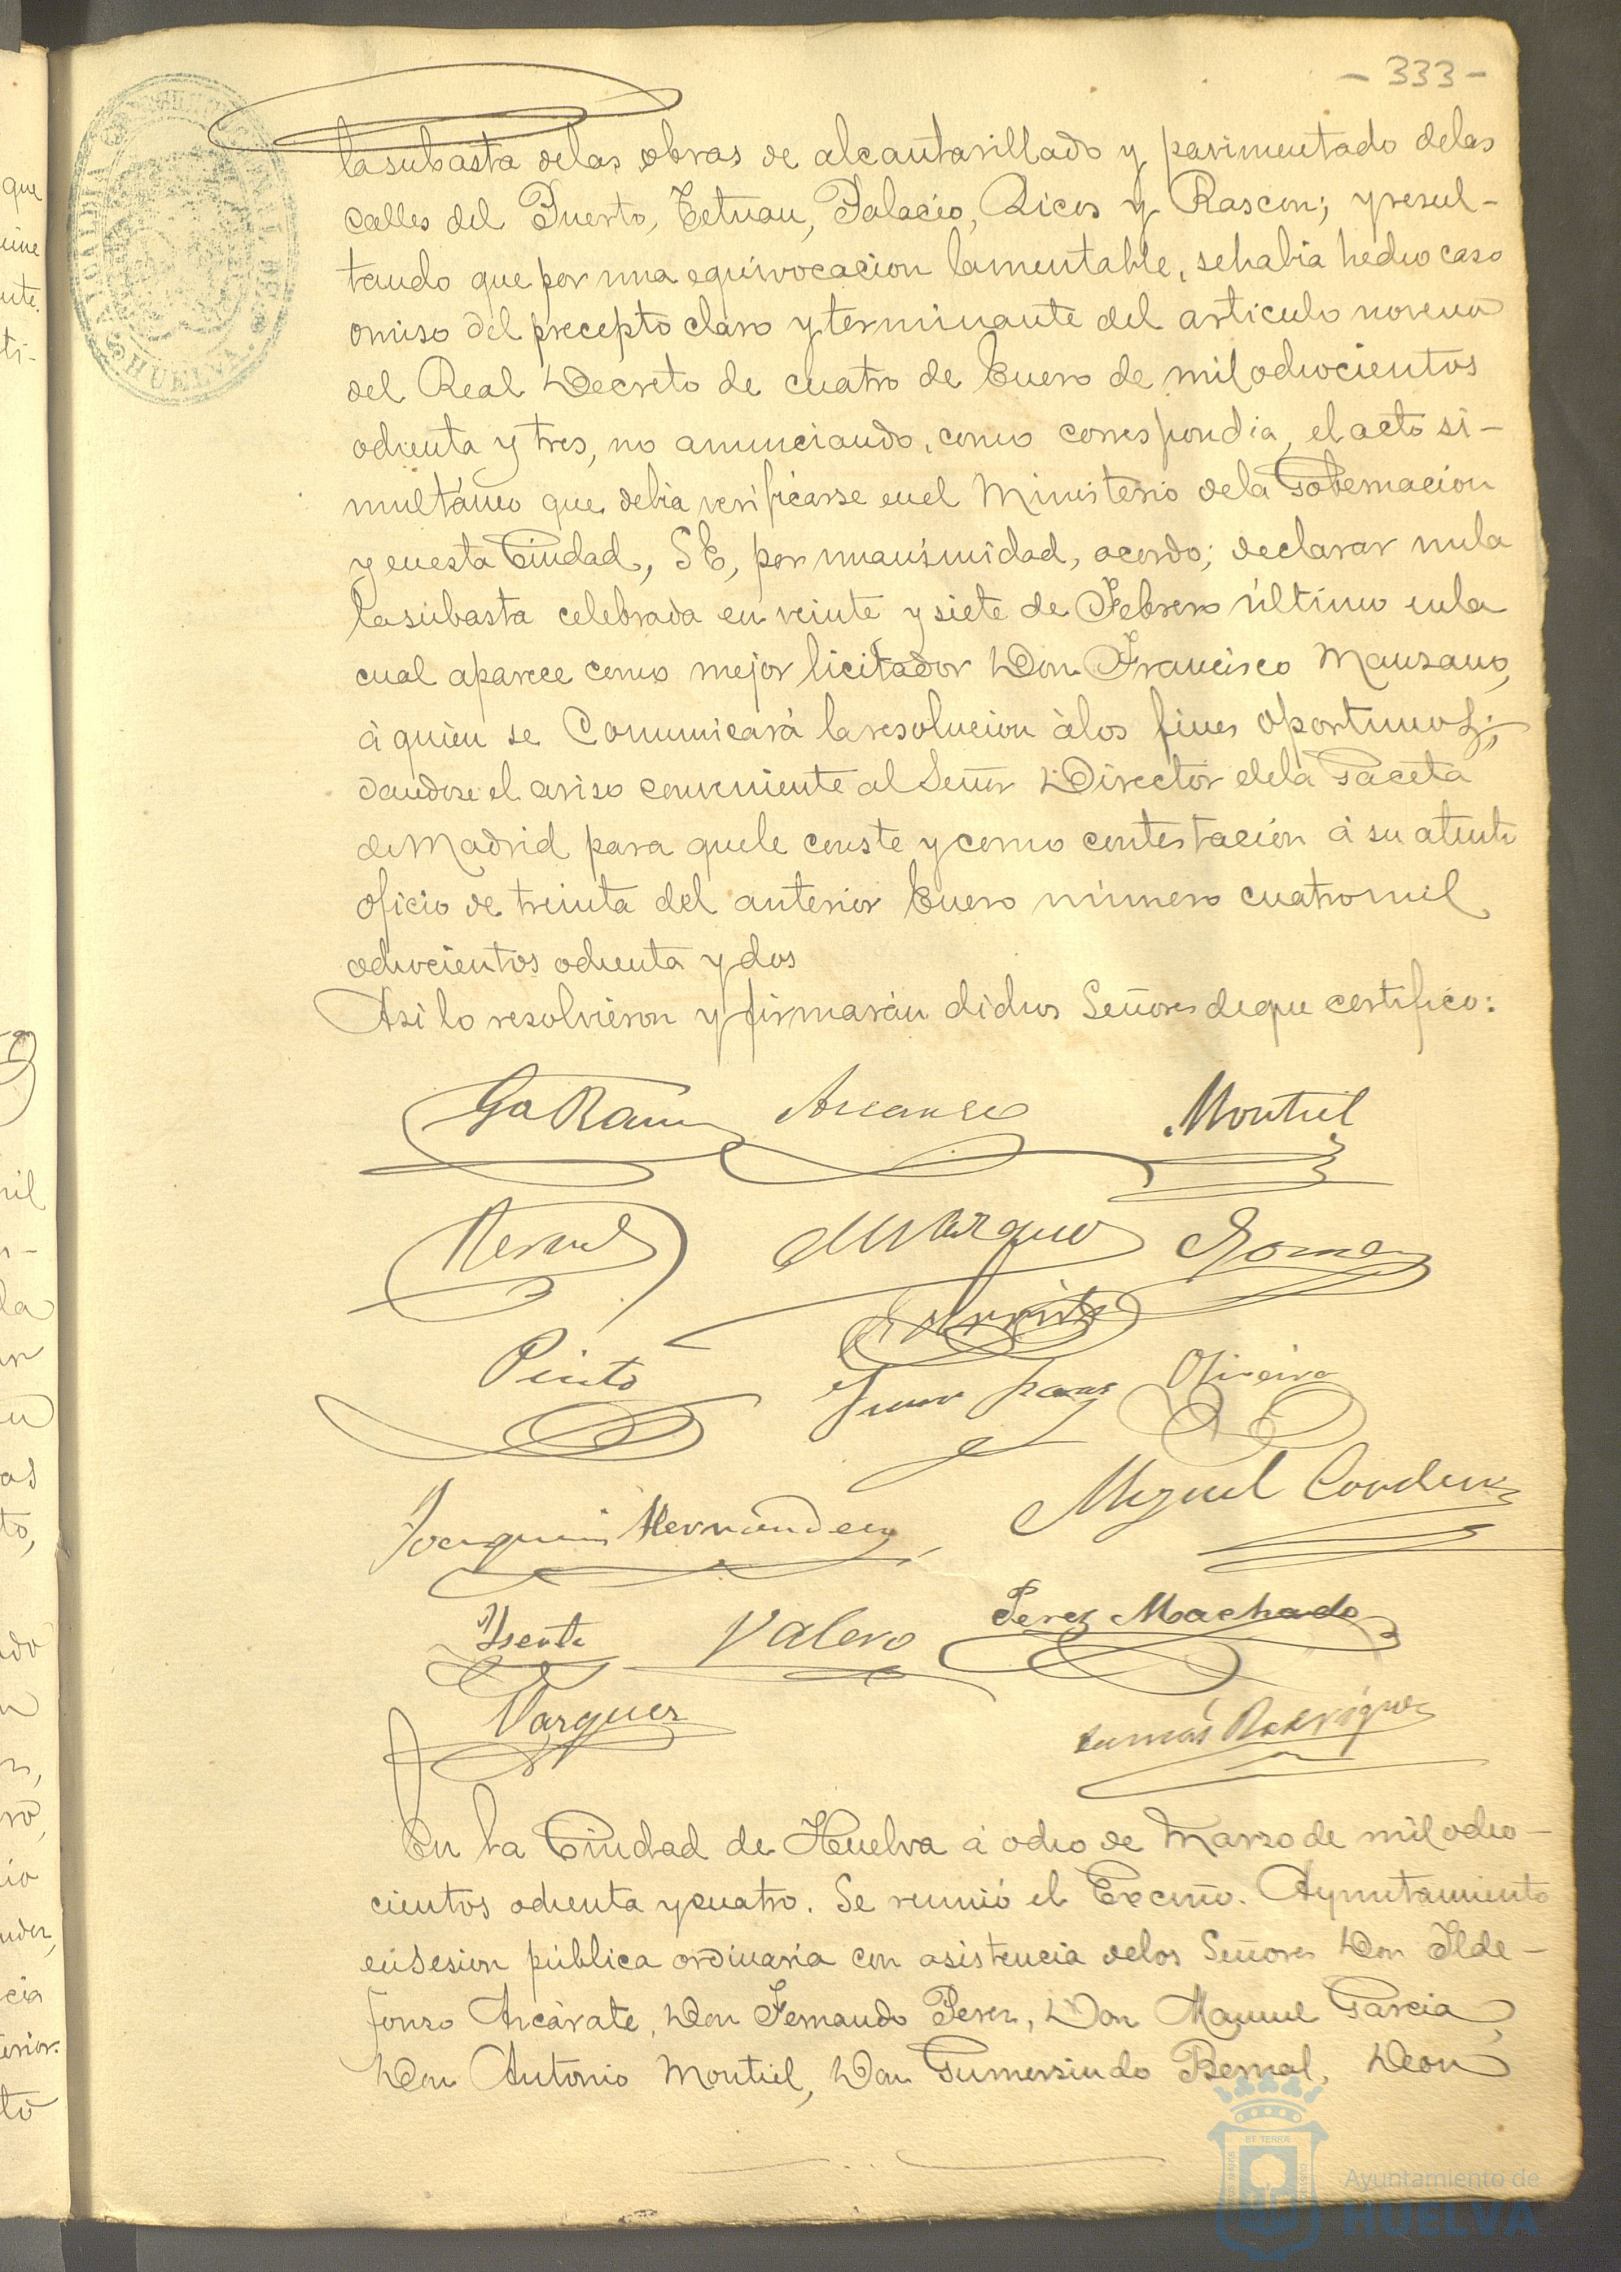 - 333 -
la subasta de las obras de alcantarillado y pavimentado de las
calles del Puerto, Tetuan, Palacio, Ricos y Rascon; y resul-
tando que por una equivocacion lamentable, se habia hecho caso
omiso del precepto claro y terminante del articulo noveno
del Real Decreto de cuatro de Enero de mil ochocientos
ochenta y tres, no anunciando, como correspondia, el acto si-
multáneo que debia verificarse en el Ministerio de la Gobernacion
y en esta Ciudad, S.E, por unanimidad, acordo; declarar nula
la subasta celebrada en veinte y siete de Febrero último en la
cual aparece como mejor licitador Don Francisco Manzano,
á quien se Comunicará la resolucion á los fines oportunos;
dandose el aviso conveniente al Señor Director de la Gaceta
de Madrid para que le conste y como contestacion á su atento
oficio de treinta del anterior Enero número cuatro mil
ochocientos ochenta y dos
Asi lo resolvieron y firmarán dichos Señores de que certifico:
Montiel
Marquez
Pinto
Oliveira
Joaquin Hernandez
Miguel
Valero
Perez Machado
Vazquez
Tomás Rodriguez
En la Ciudad de Huelva á ocho de Marzo de mil ocho-
cientos ochenta y cuatro. Se reunió el Excmo. Ayuntamiento
en sesion pública ordinaria con asistencia de los Señores Don Ilde-
fonso Ascárate, Don Fernando Perez, Don Manuel Garcia,
Don Antonio Montiel, Don Gumersindo Bernal, Don
HUELVA
Ayuntamiento de
HUELVA